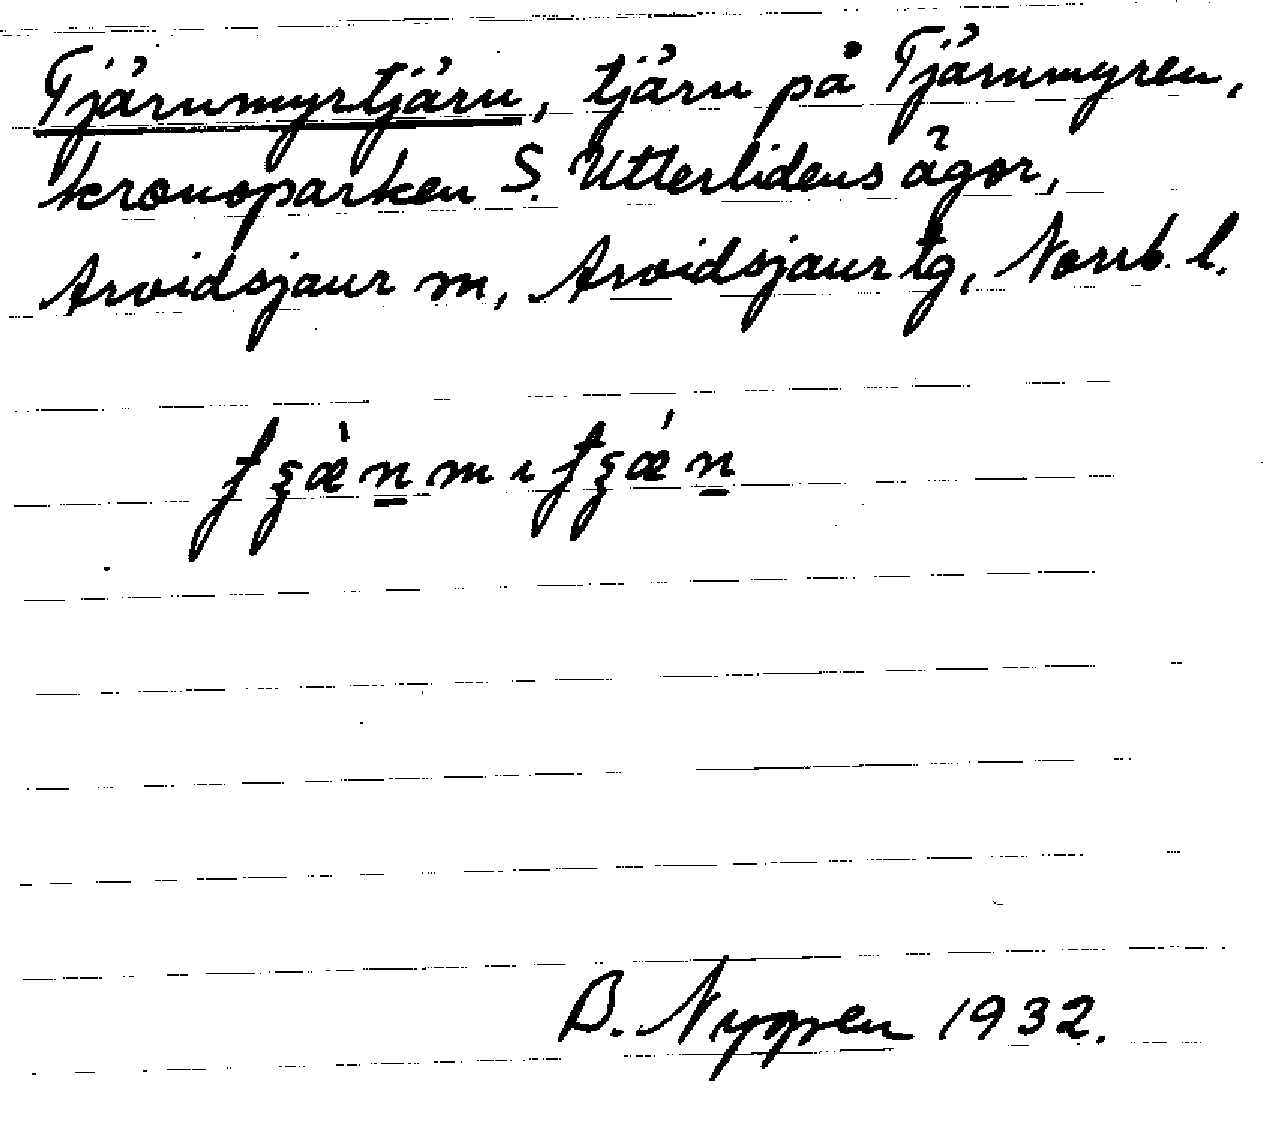 Tjärnmyrtjärn, tjärn på Tjärnmyren,
kronoparken S. Utterlidens ägor,
Arvidsjaur m, Arvidsjaur tg, Norrb. l.
B. Nygren 1932.